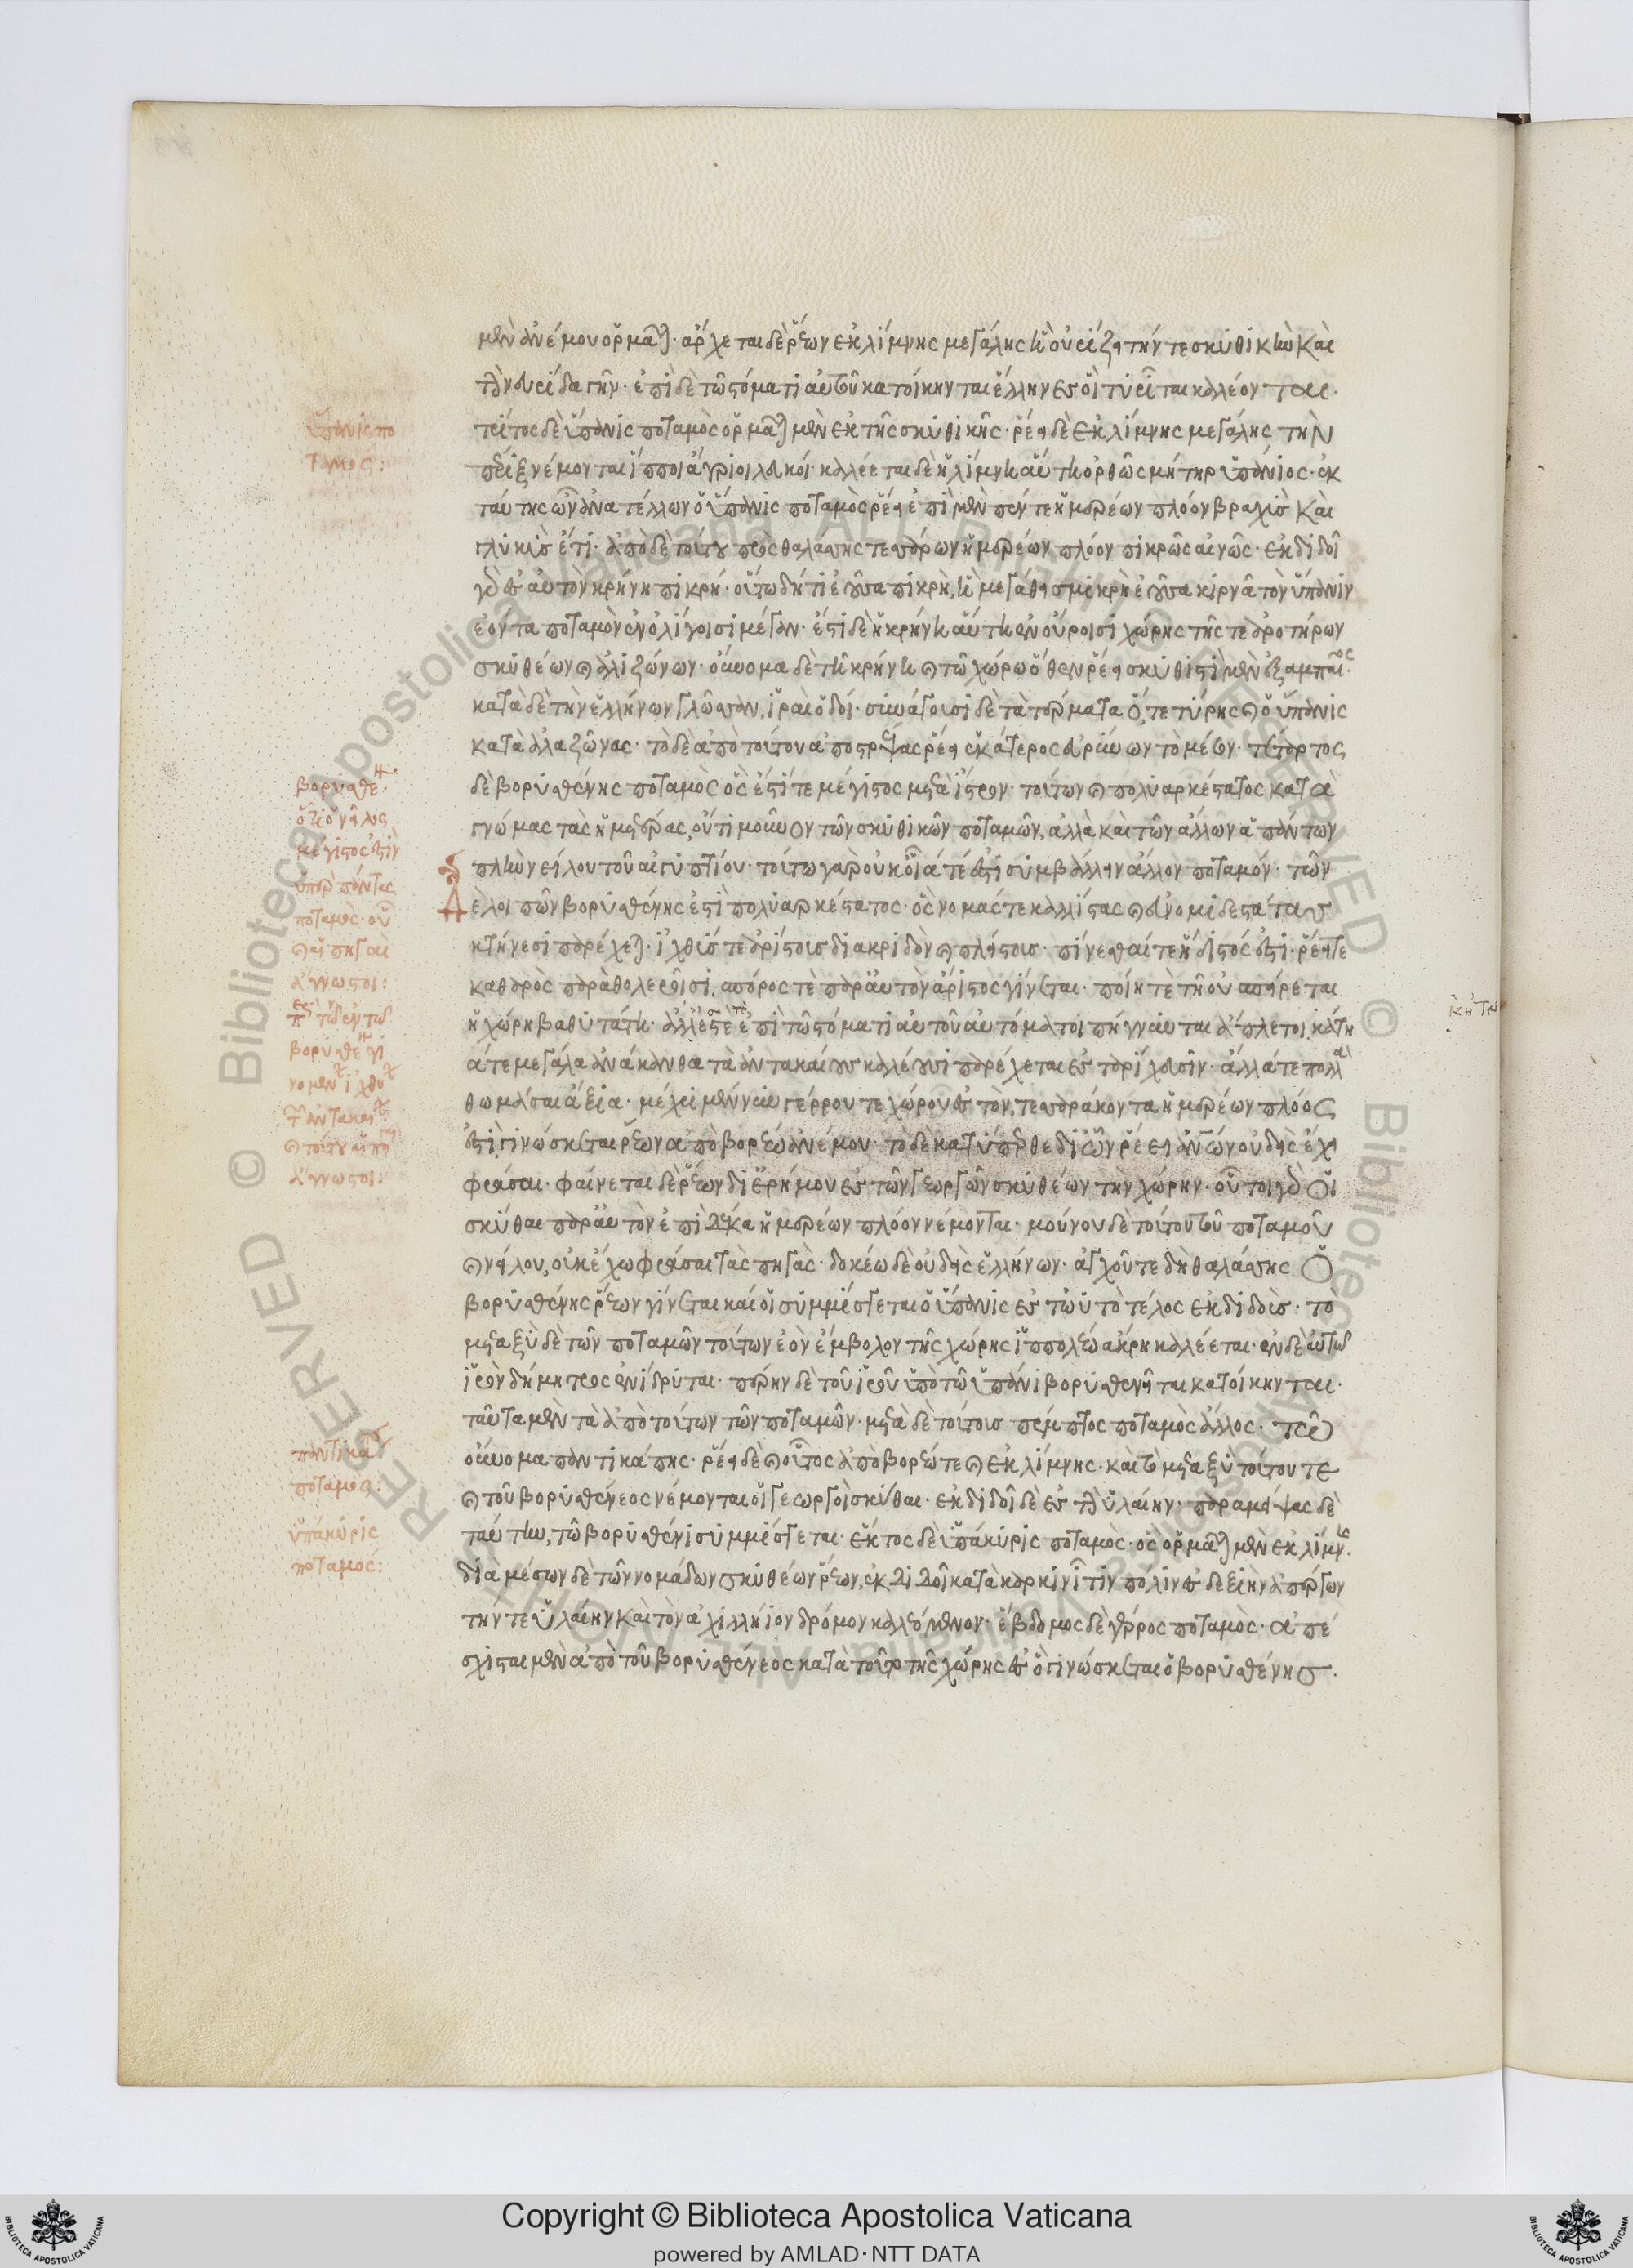 μὲν ἀνέμου ὁρμᾶται· ἄρχεται δὲ ῥέων ἐκ λίμνης μεγάλης ἣ οὐρίζει τήν τε σκυθικὴν καὶ
τὴν νευρίδα γῆν· ἐπὶ δὲ τῷ στόματι αὐτοῦ κατοίκηνται ἕλληνες οἳ τυρῖται καλέονται·
τρίτος δὲ ὕπανις ποταμὸς ὁρμᾶται μὲν ἐκ τῆς σκυθικῆς· ῥέει δὲ ἐκ λίμνης μεγάλης τὴν
πέριξ νέμονται ἵπποι ἄγριοι λευκοί· καλέεται δὲ ἡ λίμνη αὕτη ὀρθῶς μήτηρ ὑπάνιος· ἐκ
ταύτης ὦν ἀνατέλλων ὁ ὕπανις ποταμὸς ῥέει ἐπὶ μὲν πέντε ἡμερέων πλόον βραχὺς καὶ
γλυκὺς ἔτι· ἀπὸ δὲ τούτου πρὸς θαλάσσης τεσσέρων ἡμερέων πλόον πικρῶς αἰνῶς· ἐκδιδοῖ
γὰρ ἐς αὐτὸν κρήνη πικρή· οὕτω δή τι ἐοῦσα πικρὴ, ἣ μεγάθει σμικρὴ ἐοῦσα κιρνᾷ τὸν ὕπανιν
ἐόντα ποταμὸν ἐν ὀλίγοισι μέγαν· ἔστι δὲ ἡ κρήνη αὕτη ἐν οὔροισι χώρης τῆς τε ἀροτήρων
σκυθέων καὶ ἀλιζώνων· οὔνομα δὲ τῇ κρήνῃ καὶ τῷ χώρῳ ὅθεν ῥέει σκυθιστὶ μὲν ἐξαμπαῖος·
κατὰ δὲ τὴν ἑλλήνων γλῶσσαν, ἱραὶ ὁδοί· συνάγουσι δὲ τὰ τέρματα ὅ, τε τύρης καὶ ὁ ὕπανις
κατὰ ἀλαζῶνας· τὸ δὲ ἀπὸ τούτου ἀποστρέψας ῥέει ἑκάτερος εὐρύνων τὸ μέσον· τέταρτος
δὲ βορυσθένης ποταμὸς ὅς ἐστί τε μέγιστος μετὰ ἴστρον· τούτων καὶ πολυαρκέστατος κατὰ
γνώμας τὰς ἡμετέρας, οὔτι μοῦνον τῶν σκυθικῶν ποταμῶν, ἀλλὰ καὶ τῶν ἄλλων ἁπάντων
πλὴν νείλου τοῦ αἰγυπτίου· τούτῳ γὰρ οὐκ οἷά τέ ἐστι συμβάλλειν ἄλλον ποταμόν· τῶν
δὲ λοιπῶν βορυσθένης ἐστὶ πολυαρκέστατος· ὃς νομάς τε καλλίστας καὶ εὐνομιδεστάτας
κτήνεσι παρέχεται· ἰχθῦς τε ἀρίστους διακριδὸν καὶ πλείστους· πίνεσθαί τε ἥδιστός ἐστι· ῥέει τε
καθαρὸς παρὰ θολεροῖσι, σπόρος τὲ παρ' αὐτὸν ἄριστος γίνεται· ποίη τὲ τῇ οὐ σπείρεται
ἡ χώρη βαθυτάτη· ἅλες τε ἐπὶ τῷ στόματι αὐτοῦ αὐτόματοι πήγνυνται ἄπλετοι, κήτη
ά τε μεγάλα ἀνάκανθα τὰ ἀντακαίους καλέουσι παρέχεται ἐς ταρίχευσιν· ἄλλα τε πολλὰ
θωμάσαι ἄξια· μέχρι μέν νυν γέρρου τε χώρου ἐς τὸν, τεσσεράκοντα ἡμερέων πλόος
ἐστὶ, γινώσκεται ῥέων ἀπὸ βορέω ἀνέμου· τὸ δὲ κατύπερθε δι' ὧν ῥέει ἀνθρώπων οὐδεὶς ἔχει
φράσαι· φαίνεται δὲ ῥέων δι' ἐρήμου ἐς τῶν γεωργῶν σκυθέων τὴν χώρην· οὗτοι γὰρ οἱ
σκύθαι παρ' αὐτὸν ἐπὶ δέκα ἡμερέων πλόον νέμονται· μούνου δὲ τούτου τοῦ ποταμοῦ
καὶ νείλου, οὐκ ἔχω φράσαι τὰς πηγὰς· δοκέω δὲ οὐδεὶς ἑλλήνων· ἀγχοῦ τε δὴ θαλάσσης ὁ
βορυσθένης ῥέων γίνεται καί οἱ συμμίσγεται ὁ ὕπανις ἐς τὠυτὸ τέλος ἐκδιδοὺς· τὸ
μεταξὺ δὲ τῶν ποταμῶν τούτων ἐὸν ἔμβολον τῆς χώρης ἱππολέω ἄκρη καλέεται· ἐν δὲ αὐτῷ
ἱρὸν δήμητρος ἐνίδρυται· πέρην δὲ τοῦ ἱροῦ ὑπὸ τῷ ὑπάνι βορυσθενεῖται κατοίκηνται·
ταῦτα μὲν τὰ ἀπὸ τούτων τῶν ποταμῶν· μετὰ δὲ τούτους πέμπτος ποταμὸς ἄλλος· τῷ
οὔνομα παντικάπης· ῥέει δὲ καὶ οὗτος ἀπὸ βορέω τε καὶ ἐκ λίμνης· καὶ τὸ μεταξὺ τούτου τε
καὶ τοῦ βορυσθένεος νέμονται οἱ γεωργοὶ σκύθαι· ἐκδιδοῖ δὲ ἐς τὴν ὑλαίην· παραμείψας δὲ
ταύτην, τῷ βορυσθένι συμμίσγεται· ἕκτος δὲ ὑπάκυρις ποταμὸς· ὃς ὁρμᾶται μὲν ἐκ λίμνης·
διὰ μέσων δὲ τῶν νομάδων σκυθέων ῥέων, ἐκδιδοῖ κατὰ καρκινῖτιν πόλιν ἐς δεξιὴν ἀπέργων
τήν τε ὑλαίην καὶ τὸν ἀχιλλήϊον δρόμον καλεόμενον· ἕβδομος δὲ γέρρος ποταμὸς· ἀπέ
σχισται μὲν ἀπὸ τοῦ βορυσθένεος κατὰ τοῦτο τῆς χώρης ἐς ὃ γινώσκεται ὁ βορυσθένης·
ὕπανις πο
ταμός:
βορυσθένης
ὅτι ὁ νεῖλος
μέγιστος ἐστὶν
ὑπὲρ πάντας
ποταμοὺς· οὗ
καὶ αἱ πηγαὶ
ἄγνωστοι:
περὶ τῶν ἐν τῷ
βορυσθένει γι
νομένων ἰχθύων
τῶν ἀντακαίων
καὶ τούτου αἱ πηγαὶ
ἄγνωστοι:
παντικάπης
ποταμός:
ὑπάκυρις
ποταμός:
Copyright © Biblioteca Apostolica Vaticana
powered by AMLAD·NTT DATA